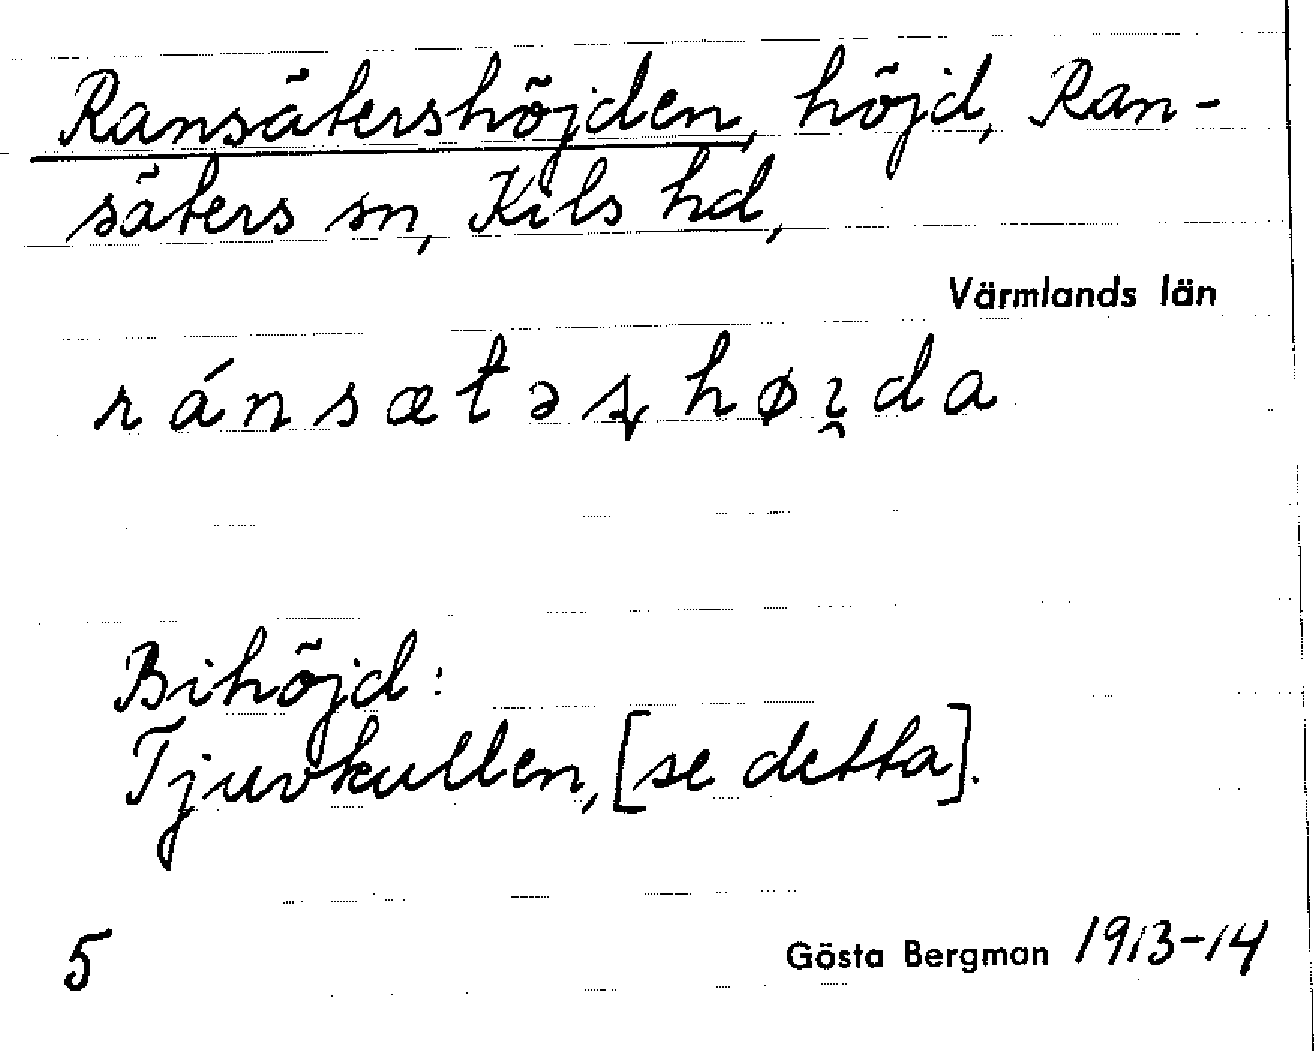 Ransätershöjden, höjd, Ran-
säters sn, Kils hd,
Värmlands län
ránsætəʂhøi̯da
Bihöjd:
Tjuvkullen, [se detta].
5
Gösta Bergman 1913-14